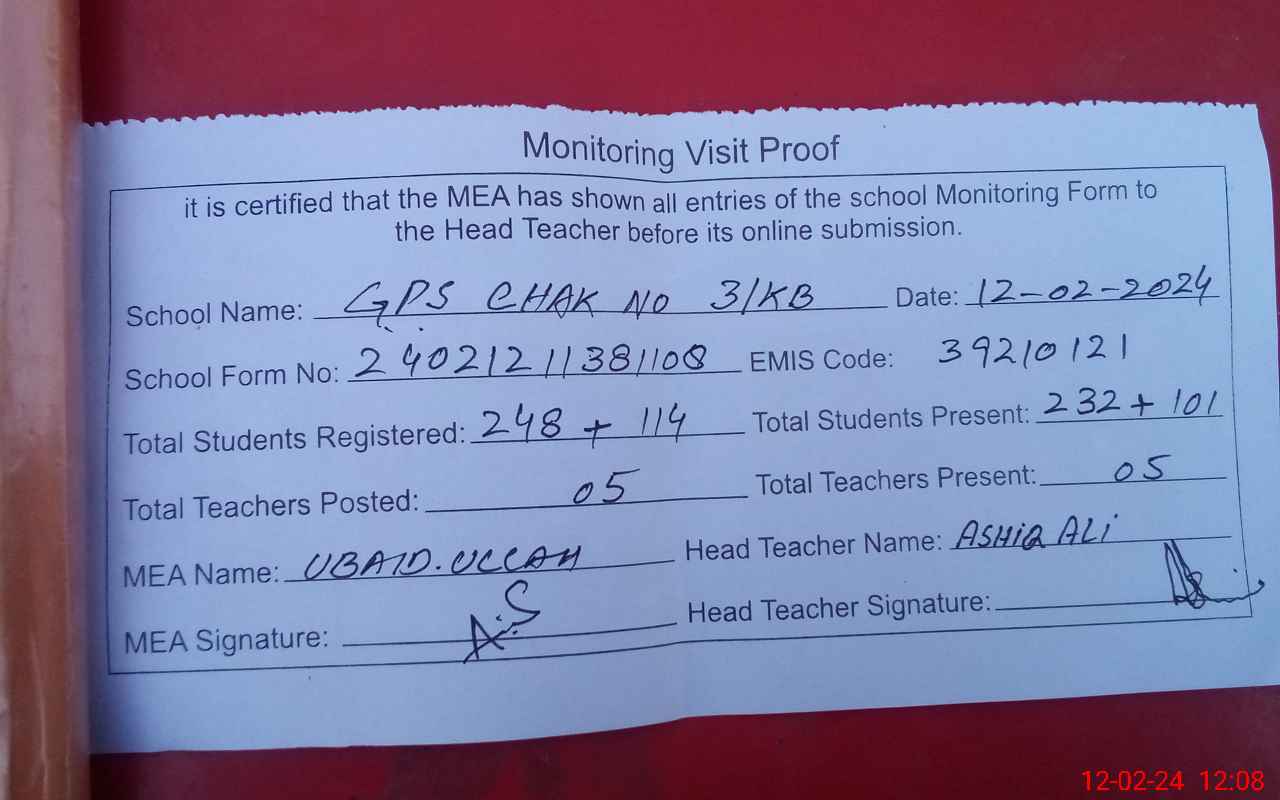 Monitoring Visit Proof
it is certified that the MEA has shown all entries of the school Monitoring Form to
the Head Teacher before its online submission.
School Name: GPS CHAK NO 3/KB Date: 12-02-2024
School Form No: 24021211381108 EMIS Code: 39210121
Total Students Registered: 248 + 114 Total Students Present: 232 + 101
Total Teachers Posted: 05 Total Teachers Present: 05
MEA Name: UBAID.ULLAH Head Teacher Name: ASHIQ ALi
MEA Signature: Head Teacher Signature:
12-02-24 12:08